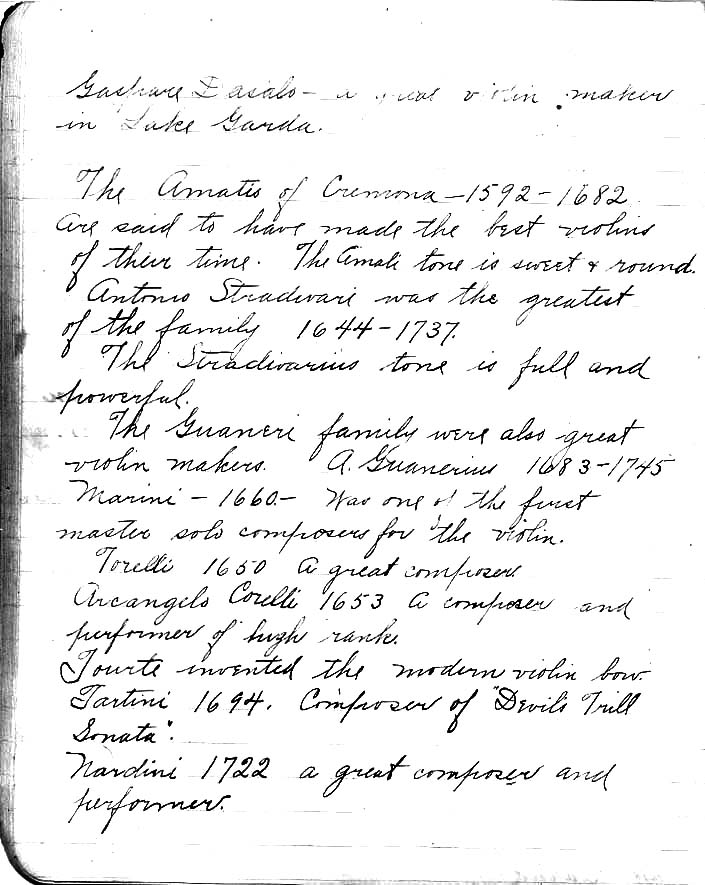 Gaspare Dasalo - a great violin maker
in Lake Garda.
The Amatis of Cremona - 1592 - 1682
are said to have made the best violins
of their time. The Amati tone is sweet & round.
Antonio Stradivari was the greatest
of the family 1644 - 1737.
The Stradivarius tone is full and
powerful.
The Guaneri family were also great
violin makers. A. Guanerius 1683 - 1745
Marini - 1660 - Was one of the first
master solo composers for the violin.
Torelli 1650 A great composer.
Arcangelo Corelli 1653 A composer and
performer of high rank.
Tourte invented the modern violin bow.
Tartini 1694. Composer of "Devil's Trill
Sonata".
Nardini 1722 a great composer and
performer.